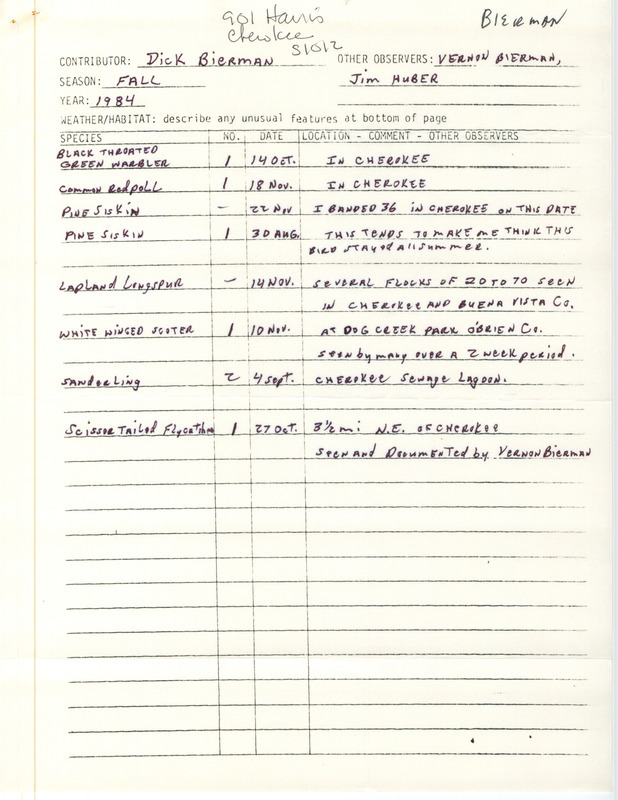 901 Harris
Cherokee
51012
BIERMAN
CONTRIBUTOR: Dick Bierman OTHER OBSERVERS: VERNON BIERMAN,
SEASON: FALL Jim HUBER
YEAR: 1984
WEATHER/HABITAT: describe any unusual features at bottom of page
SPECIES NO. DATE LOCATION - COMMENT - OTHER OBSERVERS
BLACK THROATED
GREEN WARBLER 1 14 OCT. IN CHEROKEE
Common Redpoll 1 18 Nov. IN CHEROKEE
PINE SISKIN - 22 Nov I BANDED 36 IN CHEROKEE ON THIS DATE
PINE SISKIN 1 30 AUG. THIS TENDS TO MAKE ME THINK THIS
BIRD STAYED All SUMMER.
LAPLAND LONGSPUR - 14 NOV. SEVERAL FLOCKS OF 20 TO 70 SEEN
IN CHEROKEE AND BUENA VISTA Co.
WHITE WINGED SCOTER 1 10 Nov. AT DOG CREEK PARK O'BRIEN Co.
SEEN by MANY OVER A 2 WEEK PERIOD.
SANDERLING 2 4 Sept. CHEROKEE SEWAGE LAGOON.
SCISSOR TAILED Flycatcher 1 27 Oct. 3½ mi N.E. OF CHEROKEE
SEEN AND DOCUMENTED by VERNON BIERMAN